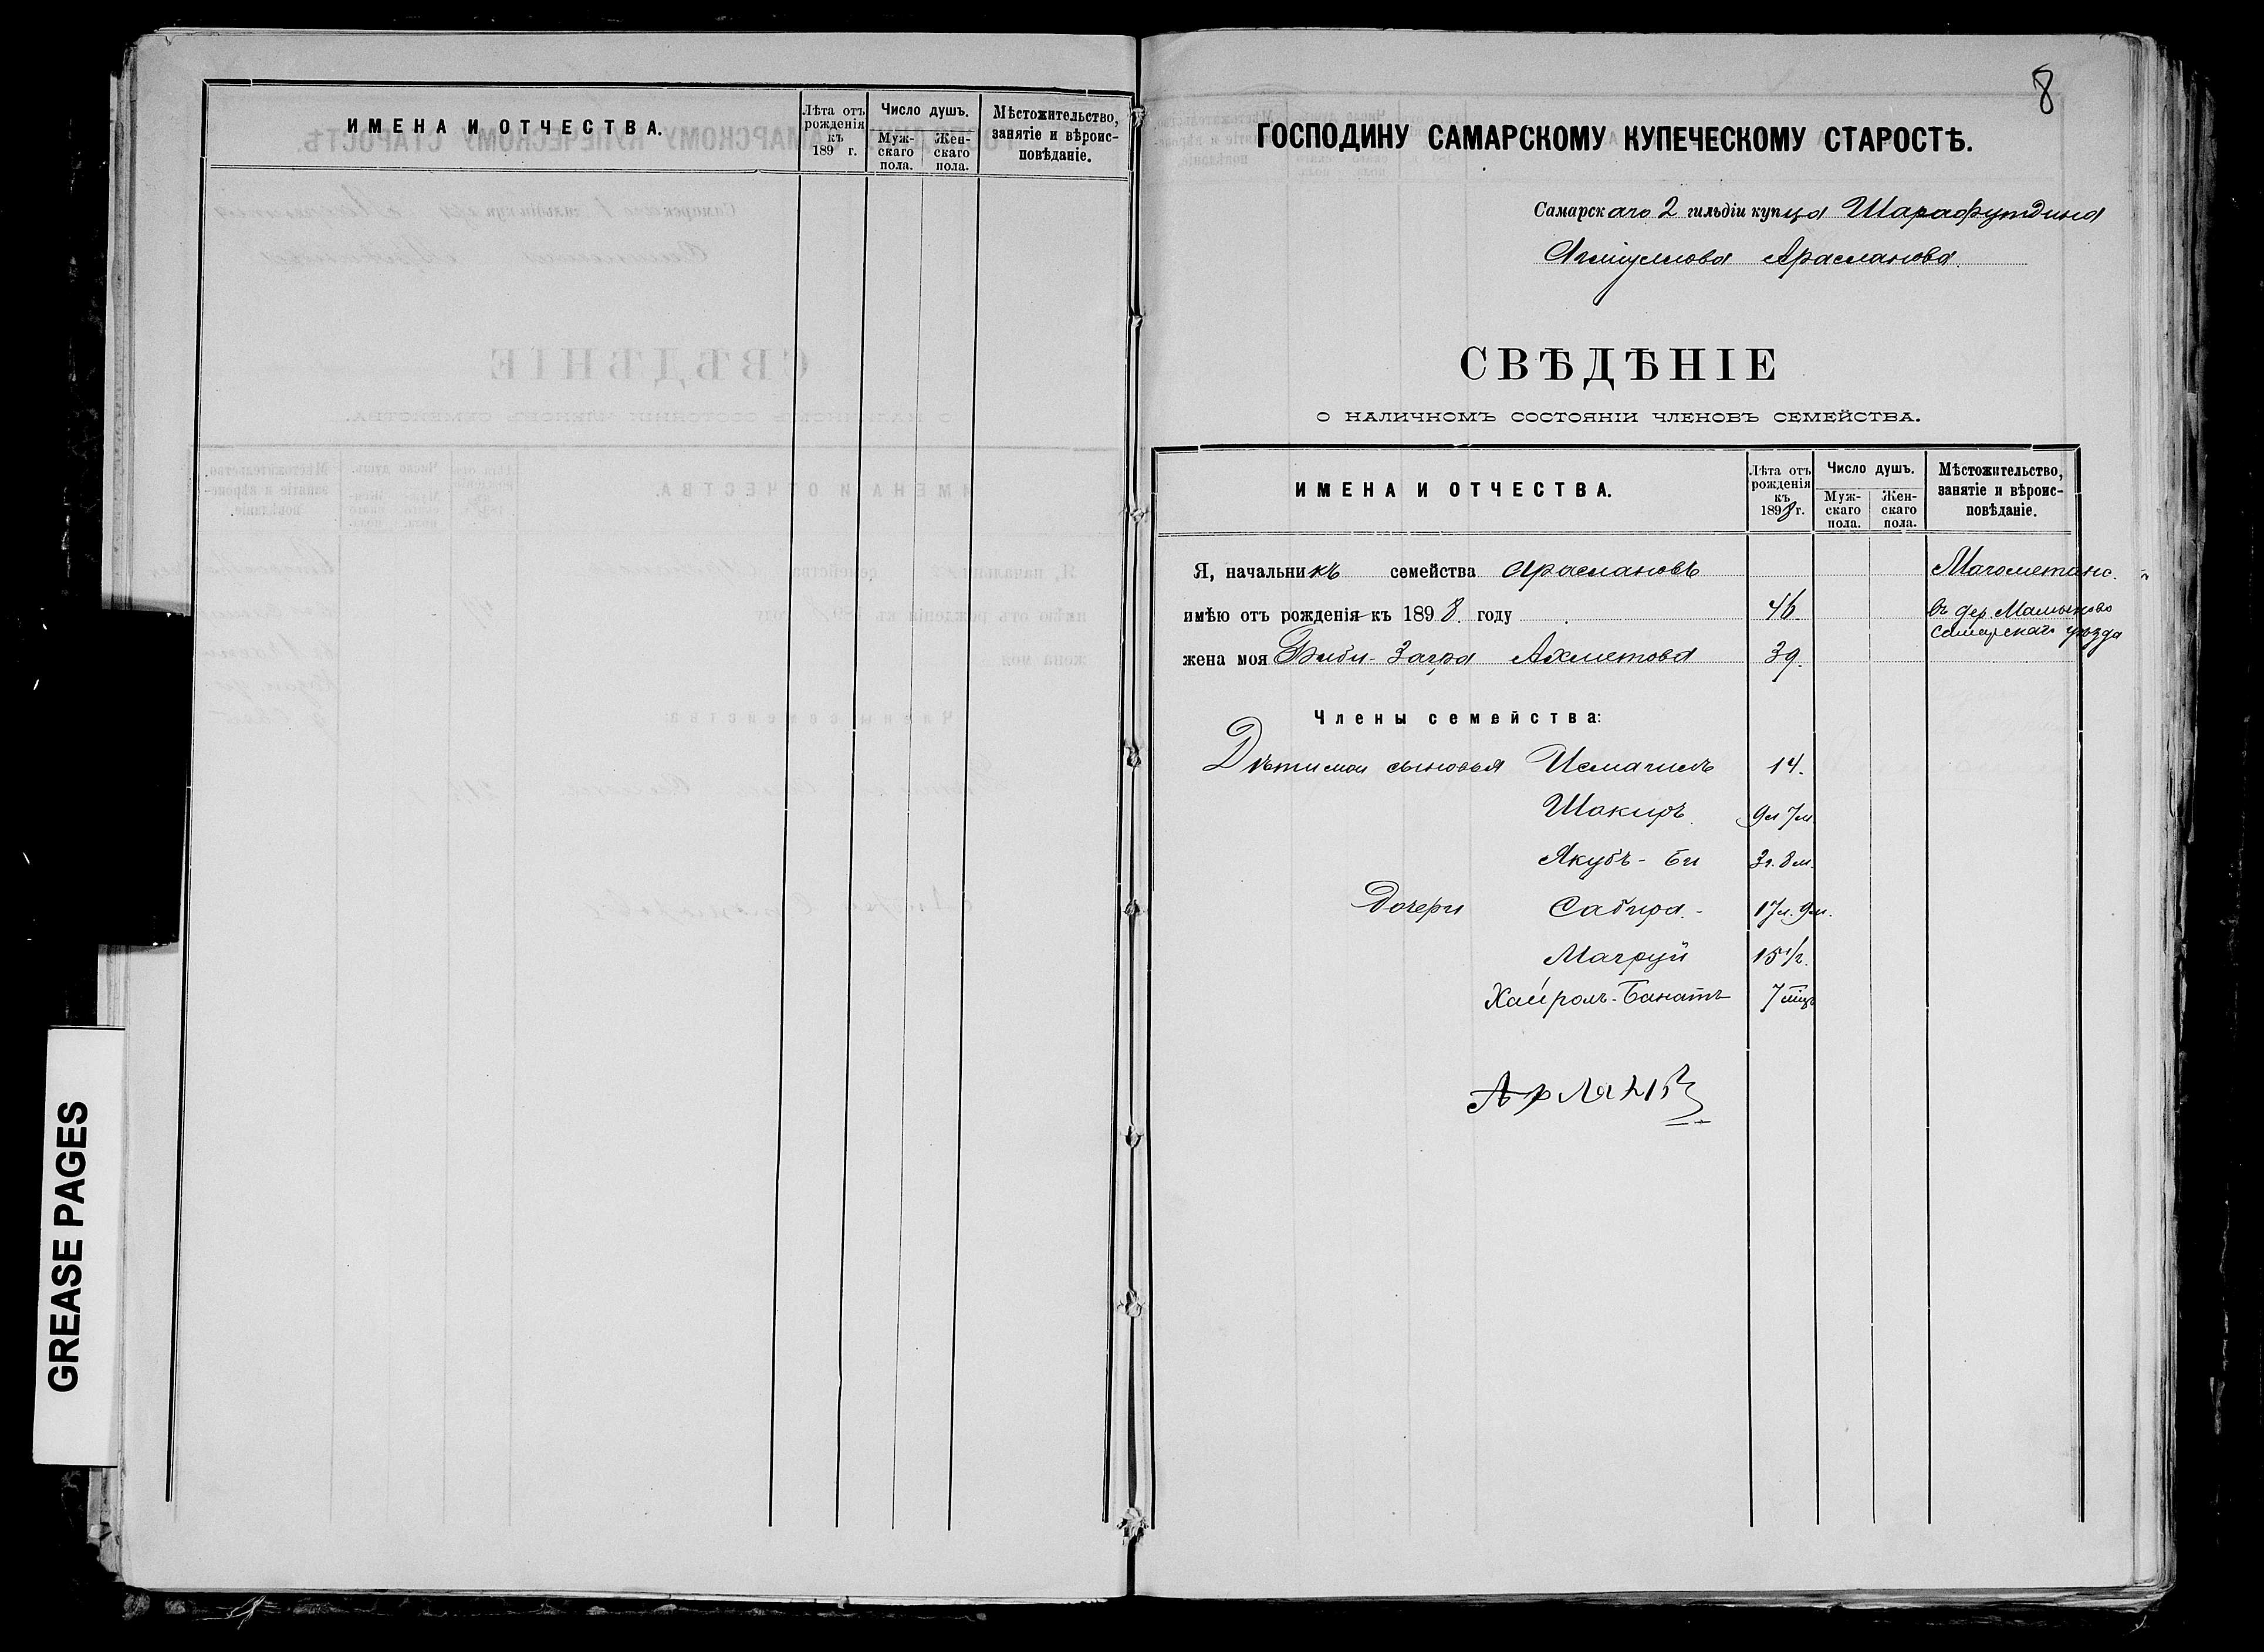 ИМЕНА И ОТЧЕСТВА.
Лѣта отъ рожденія къ 189 г.
Число душъ.
Муж-скаго пола.
Жен-скаго пола.
Мѣстожительство, занятіе и вѣроис-повѣданіе.
GREASE PAGES
8
ГОСПОДИНУ САМАРСКОМУ КУПЕЧЕСКОМУ СТАРОСТѢ.
Самарскаго 2 гильдіи купца Шарафутдина
Арасланова
СВѢДѢНІЕ
О НАЛИЧНОМЪ СОСТОЯНІИ ЧЛЕНОВЪ СЕМЕЙСТВА.
ИМЕНА И ОТЧЕСТВА.
Лѣта отъ рожденія къ 1898 г.
Число душъ.
Муж-скаго пола.
Жен-скаго пола.
Мѣстожительство, занятіе и вѣроис-повѣданіе.
Я, начальникъ семейства Араслановъ Магометанс.
имѣю отъ рожденія къ 1898. году 46. въ дер.
Самарскаго уѣзда
жена моя Биби-Загра Ахметова 39.
Члены семейства:
Дѣти мои сыновья Исмагилъ 14.
Шакиръ 9л 7м.
Якубъ-Би 3г. 8м.
Дочери Сабира. 17л. 9м.
Магруй 15 1/2.
Хайролъ-Банатъ 7 мѣц